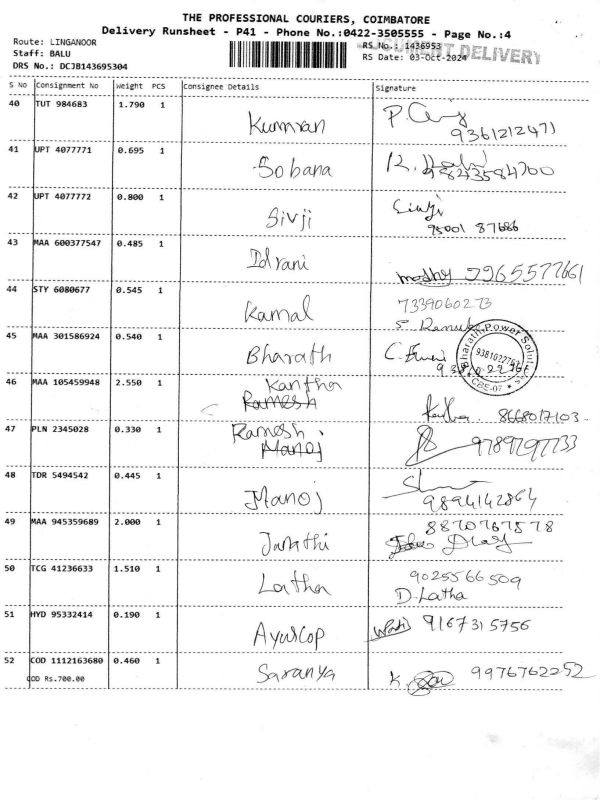 THE PROFESSIONAL COURIERS, COIMBATORE
Delivery Runsheet - P41 - Phone No.:0422-3505555 - Page No.:4
Route: LINGANOOR
RS No.: 1436953
DOCUMENT DELIVERY
Staff: BALU
RS Date: 03-Oct-2024
DRS No.: DCJB143695304
S No Consignment No Weight PCS Consignee Details Signature
40 TUT 984683 1.790 1 Kumran 9361212471
41 UPT 4077771 0.695 1 Sobana 9843584700
42 UPT 4077772 0.800 1 Sivji
98001 87686
43 MAA 600377547 0.485 1 Idrani
7965577661
44 STY 6080677 0.545 1 Kamal 7339060273
45 MAA 301586924 0.540 1 Bharath
Bharath Power Solu
CBE-07
46 MAA 105459948 2.550 1 Kantha
Ramesh
8668017103
47 PLN 2345028 0.330 1 Ramesh
Manoj
9789797733
48 TDR 5494542 0.445 1 Manoj 9894142864
49 MAA 945359689 2.000 1 8870767578
50 TCG 41236633 1.510 1 Latha 9025566509
D.Latha
51 HYD 95332414 0.190 1 Ayurcop 9167315756
52 COD 1112163680 0.460 1 Saranya K. 9976762252
COD Rs.700.00